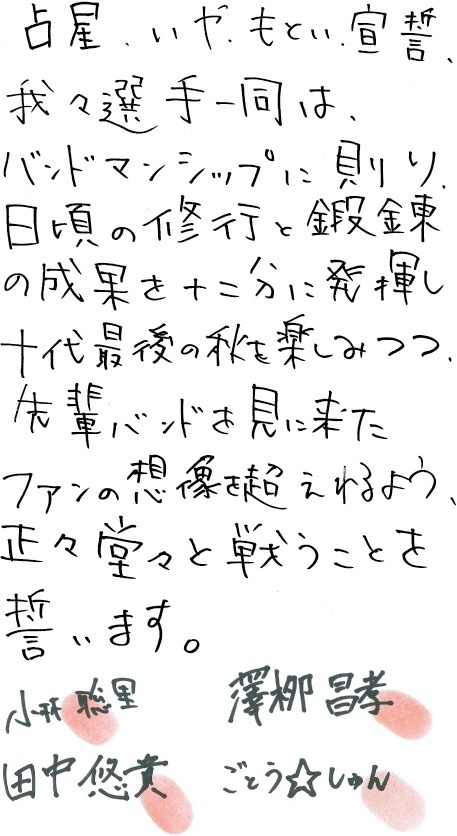 占星、いや、もとい、宣誓、
我々選手一同は、
バンドマンシップに則り、
日頃の修行と鍛錬
の成果を十二分に発揮し
十代最後の秋を楽しみつつ、
先輩バンドを見に来た
ファンの想像を超えれるよう、
正々堂々と戦うことを
誓います。
小林聡里 澤柳昌孝
田中悠貴 ごとう☆しゅん